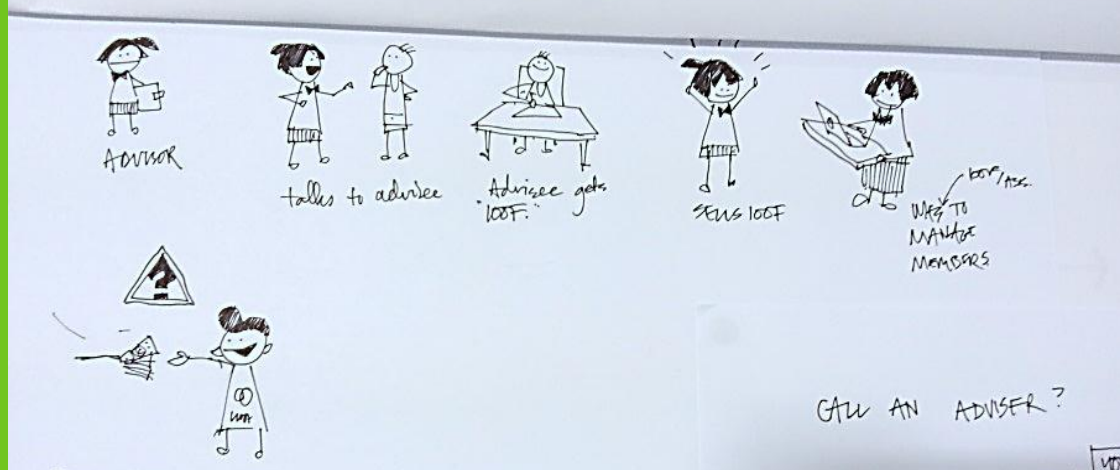 ADVISOR
talks to advisee
Advisee gets
"100F."
SELLS 100F
WAS TO
MANAGE
MEMBERS
?
100F
CALL AN ADVISER?